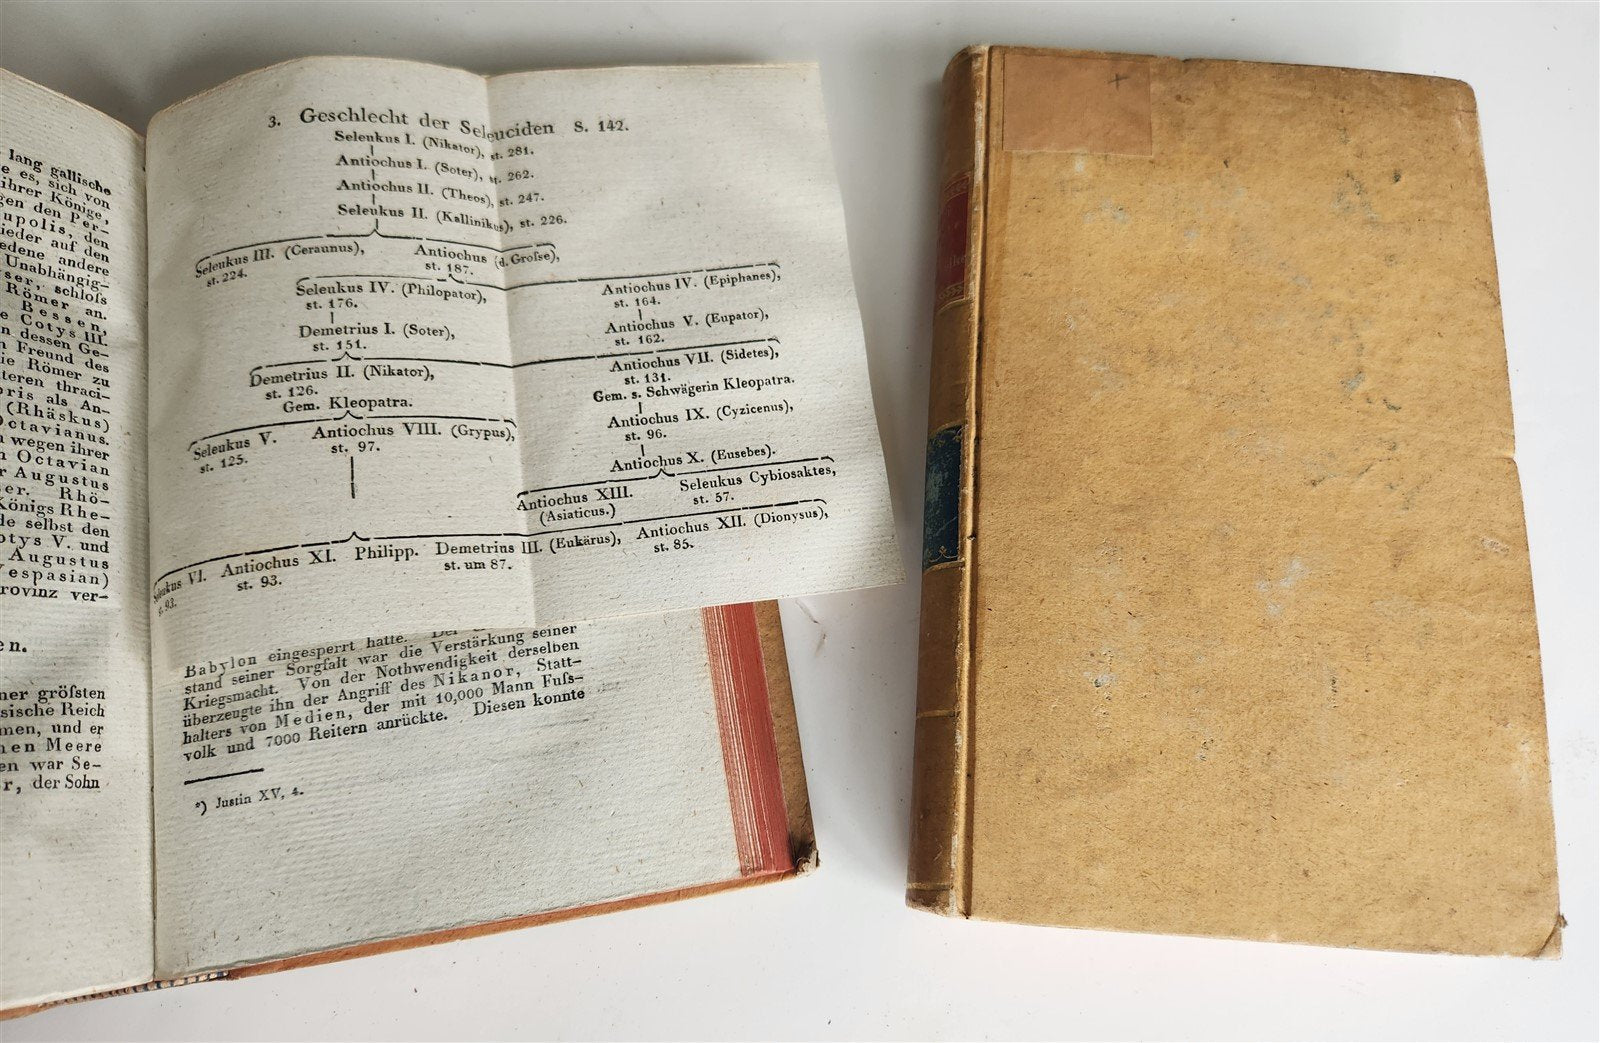 lang gallische
e es, sich von
ihrer Könige,
gen den Per-
upolis, den
ieder auf den
edene andere
Unabhängig-
ser, schloſs
Römer an.
Bessen,
e Cotys III.
n dessen Ge-
n Freund des
ie Römer zu
teren thraci-
oris als An-
(Rhäskus)
Octavianus.
wegen ihrer
n Octavian
r Augustus
ser. Rhö-
Königs Rhe-
de selbst den
otys V. und
Augustus
Vespasian)
rovinz ver-
en.
ner gröſsten
sische Reich
men, und er
hen Meere
en war Se-
r, der Sohn
3. Geschlecht der Seleuciden S. 142.
Seleukus I. (Nikator), st. 281.
Antiochus I. (Soter), st. 262.
Antiochus II. (Theos), st. 247.
Seleukus II. (Kallinikus), st. 226.
Seleukus III. (Ceraunus), Antiochus (d. Groſse),
st. 224. st. 187.
Seleukus IV. (Philopator), Antiochus IV. (Epiphanes),
st. 176. st. 164.
Demetrius I. (Soter), Antiochus V. (Eupator),
st. 151. st. 162.
Demetrius II. (Nikator), Antiochus VII. (Sidetes),
st. 126. st. 131.
Gem. Kleopatra. Gem. s. Schwägerin Kleopatra.
Seleukus V. Antiochus VIII. (Grypus), Antiochus IX. (Cyzicenus),
st. 125. st. 97. st. 96.
Antiochus X. (Eusebes).
Antiochus XIII. Seleukus Cybiosaktes,
(Asiaticus.) st. 57.
Seleukus VI. Antiochus XI. Philipp. Demetrius III. (Eukärus), Antiochus XII. (Dionysus),
st. 93. st. 93. st. um 87. st. 85.
Babylon eingesperrt hatte. Der
stand seiner Sorgfalt war die Verstärkung seiner
Kriegsmacht. Von der Nothwendigkeit derselben
überzeugte ihn der Angriff des Nikanor, Statt-
halters von Medien, der mit 10,000 Mann Fuſs-
volk und 7000 Reitern anrückte. Diesen konnte
*) Justin XV, 4.